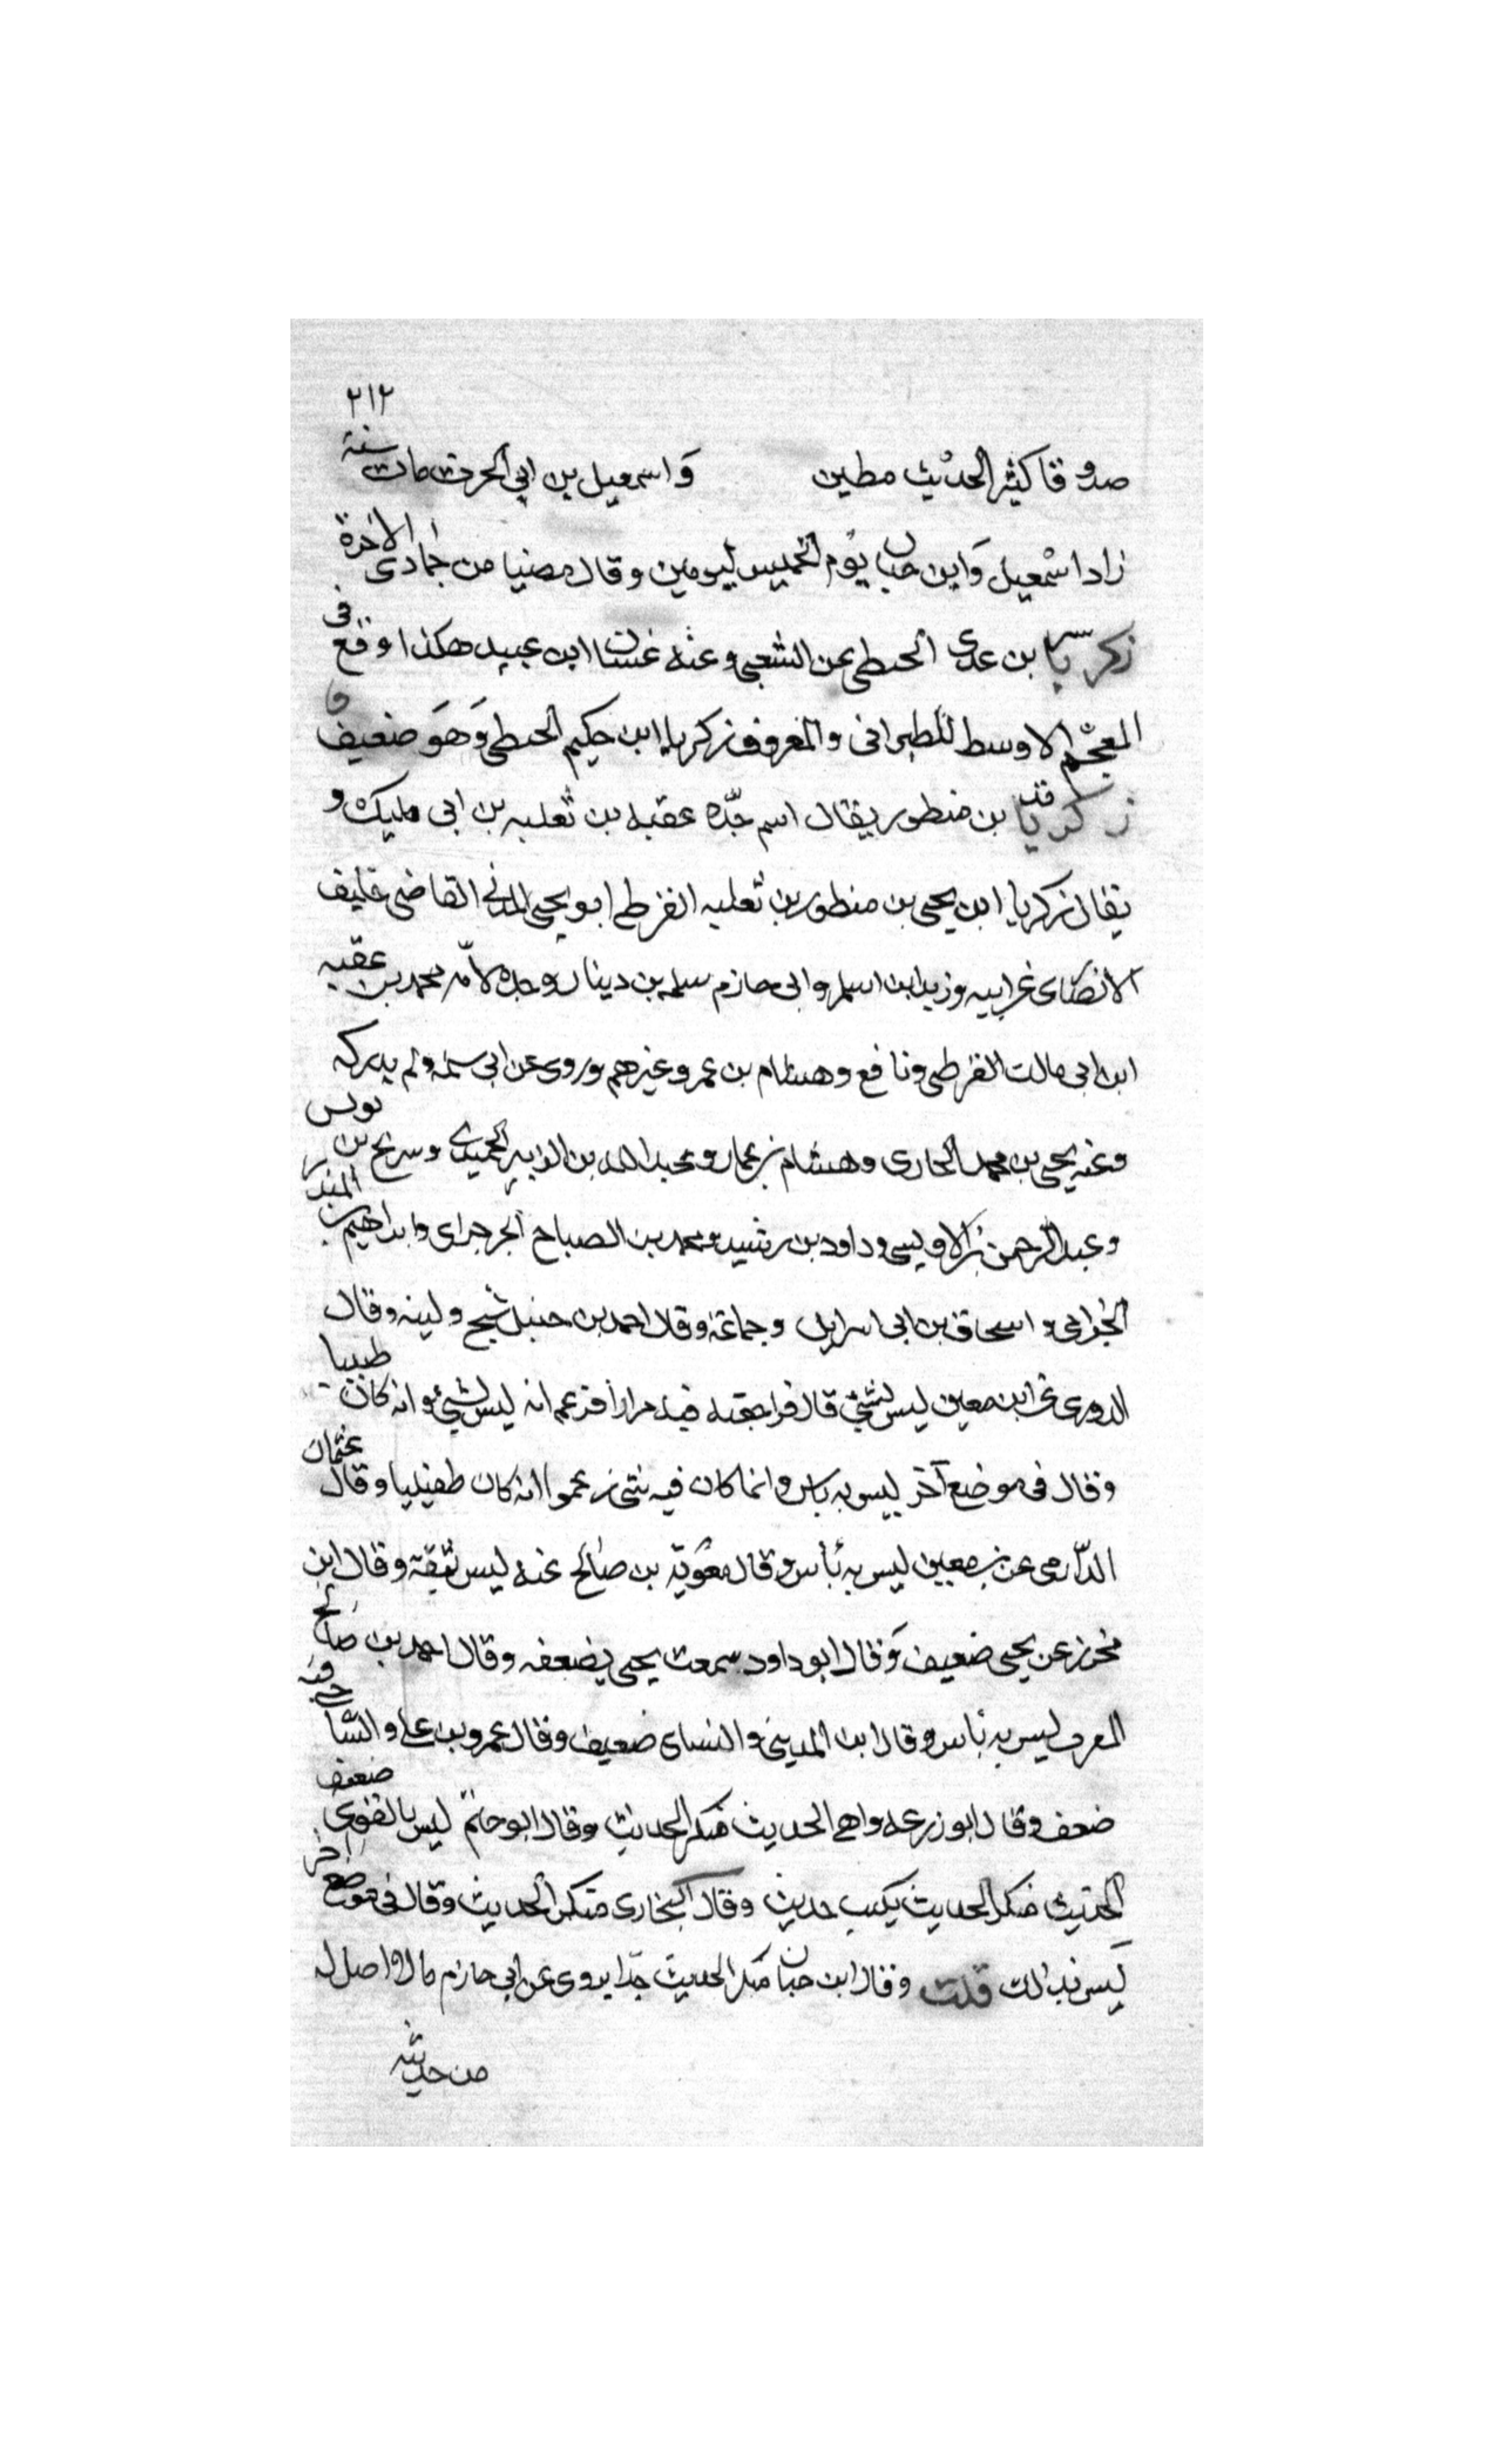 ٢١٢
صدوقا كثير الحديث مطين واسمعيل بن ابي الحرث مات سنة
زاد اسمعيل وابن حبان يوم الخميس ليومين وقال مضيا من جمادى الاخرة
زكريا بن عدى الحبطى عن الشعبى وعنه غسان ابن عبيد هكذا وقع فى
المعجم الاوسط للطبرانى والمعروف زكريا ابن حكيم الحبطى وهو ضعيف
زكريا بن منظور يقال اسم جده عقبه بن ثعلبه بن ابى مليك و
يقال زكريا ابن يحيى بن منظور بن ثعلبه القرظى ابو يحيى المدنى القاضى حليف
الانصاى عن ابيه وزيد ابن اسلم وابى حازم سلمه بن دينار وجده لامه محمد بن عقبه
ابن ابى مالك القرظى ونافع وهشام بن عمرو وغيرهم وروى عن ابى سلمه ولم يدركه
وعنه يحيى بن محمد الجارى وهشام بن عمار وعبد الله بن الزبير الحميدى وسريج بن يونس
وعبد الرحمن الاويسى وداود بن رشيد ومحمد بن الصباح الجرجراى وابراهيم بن المنذر
الحزامى واسحاق بن ابى اسرايل وجماعة وقال احمد بن حنبل شيخ ولينه وقال
الدورى عن ابن معين ليس بشئ قال فراجعته فيه مرارا فزعم انه ليس بشئ وانه كان طبيبا
وقال فى موضع آخر ليس به باس وانما كان فيه شى زعموا انه كان طفيليا وقال عثمان
الدارمى عن بن معين ليس به بأس وقال معوية بن صالح عنه ليس بثقة وقال ابن
محرز عن يحيى ضعيف وقال ابو داود سمعت يحيى يضعفه وقال احمد بن صالح
المصرى ليس به بأس وقال ابن المدينى والنساى ضعيف وقال عمرو بن على والساجى فيه
ضعف وقال ابو زرعه واهى الحديث منكر الحديث وقال ابو حاتم ليس بالقوى ضعيف
الحديث منكر الحديث يكتب حديثه وقال البخارى منكر الحديث وقال فى موضع اخر
ليس بذالك قلت وقال ابن حبان منكر الحديث جدا يروى عن ابى حازم مالا اصل له
من حديثه